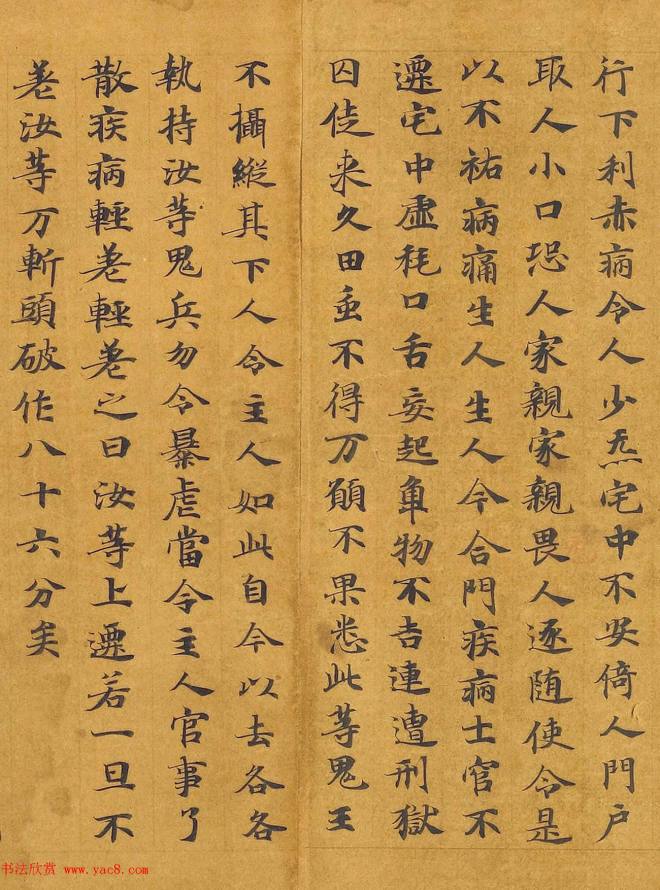 行下利赤病令人少炁宅中不安倚人門户
取人小口恐人家親家親畏人逐随使令是
以不祐病痛生人生人今合門疾病士官不
遷宅中虛耗口舌妄起物不吉連遭刑獄
囚徒来久田蚕不得万願不果悉此等鬼王
不攝縱其下人令主人如此自今以去各各
執持汝等鬼兵勿令暴虐當令主人官事了
散疾病輕差輕差之日汝等上遷若一旦不
差汝等万斬頭破作八十六分矣
书法欣赏 www.yac8.com